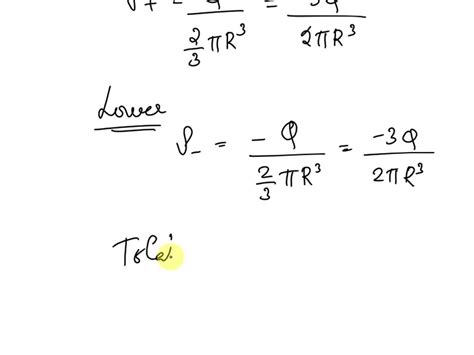 ρ+ = Q / (2/3 πR³) = 3Q / 2πR³
Lower
ρ- = -Q / (2/3 πR³) = -3Q / 2πR³